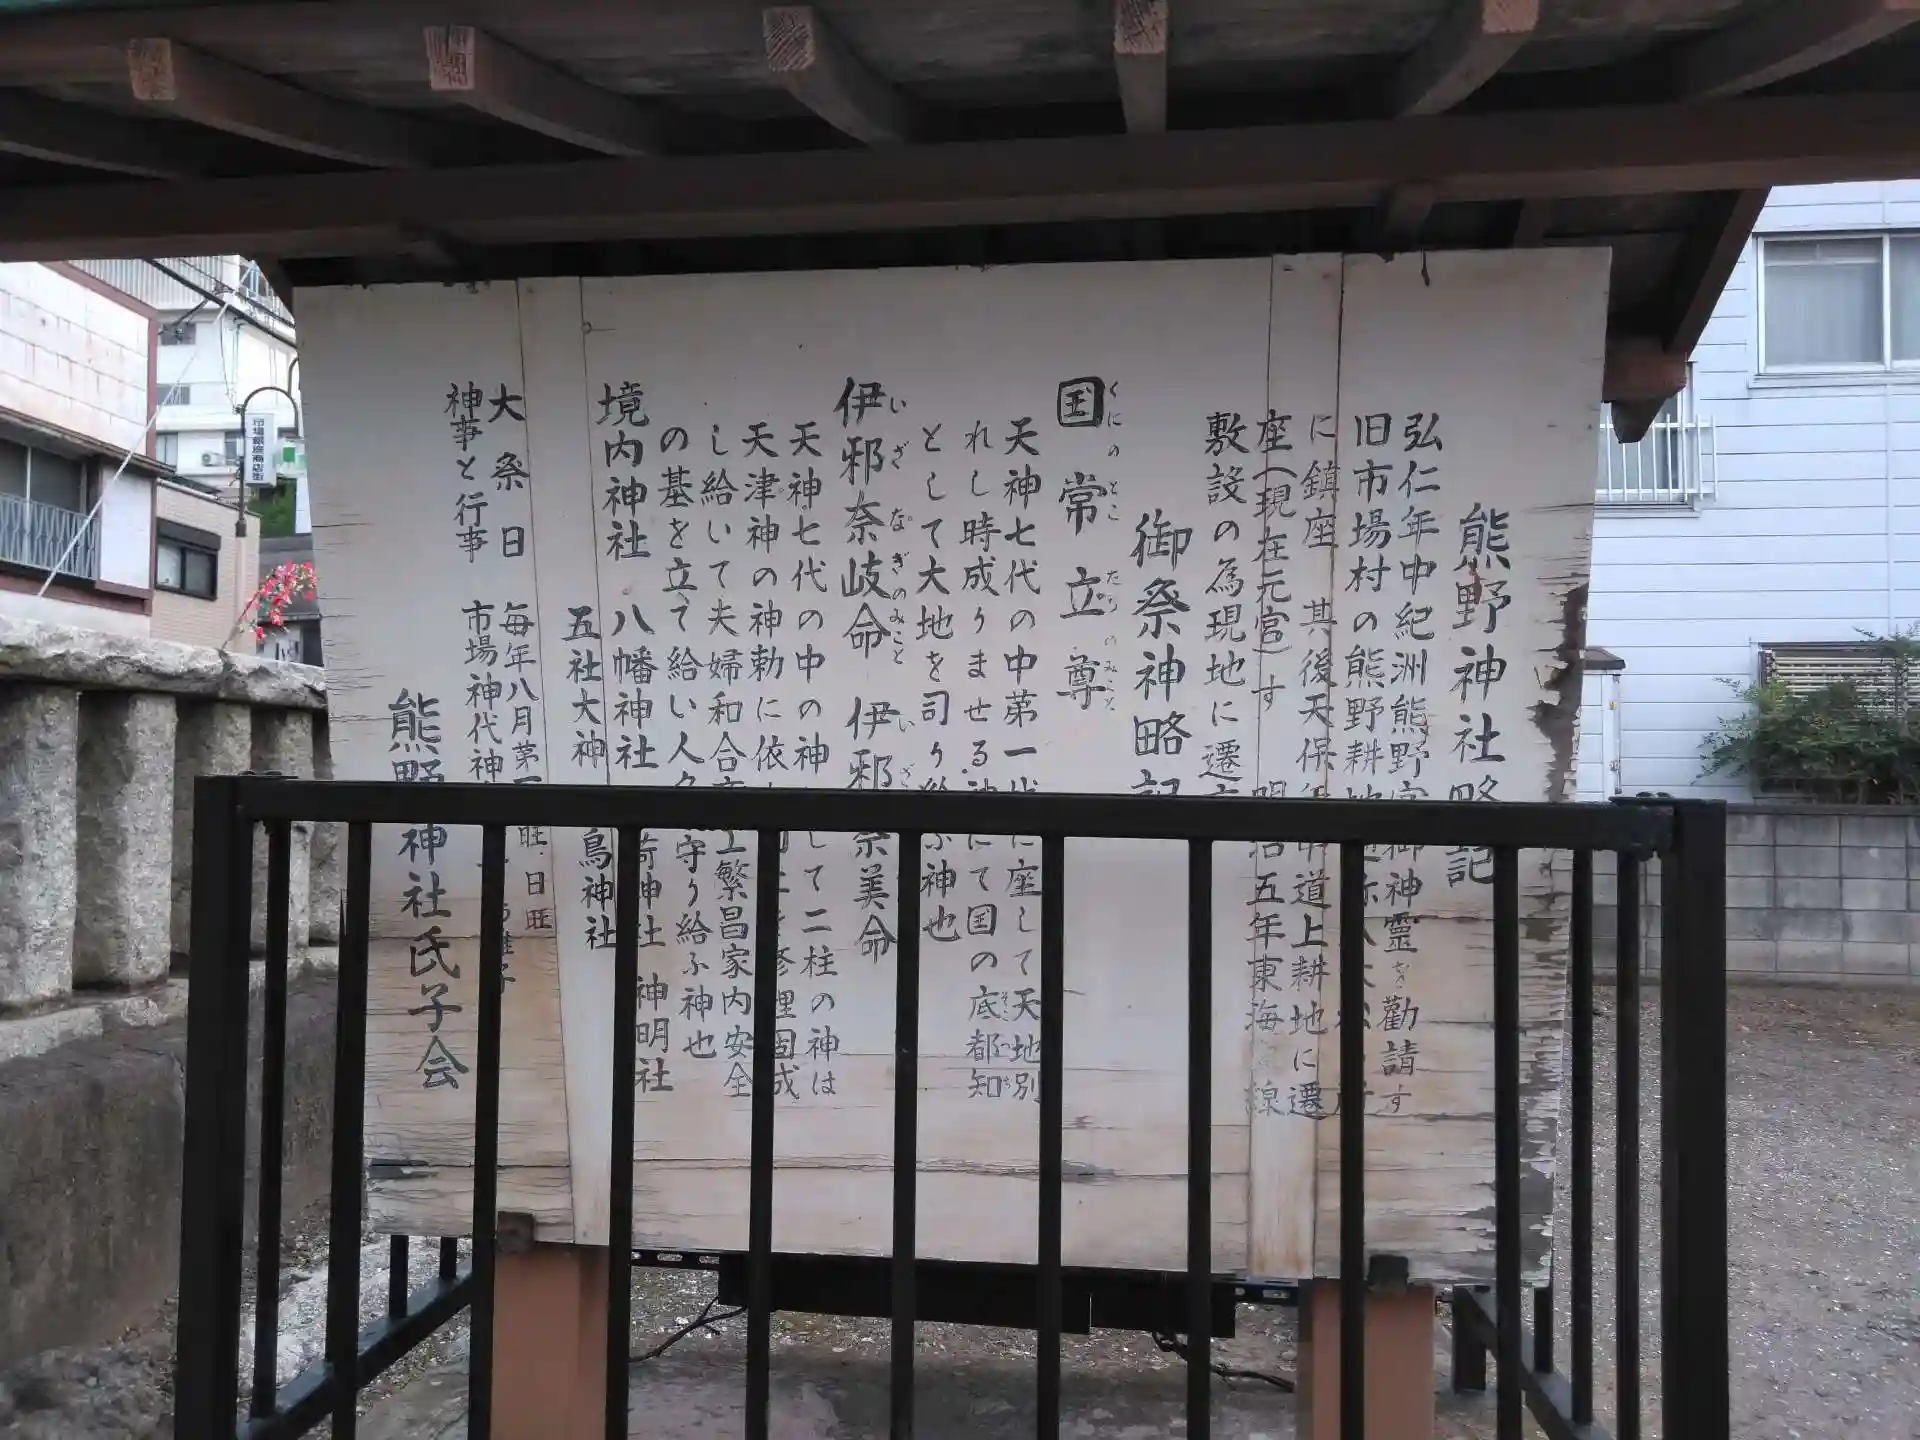 熊野神社略記
弘仁年中紀洲熊野 御神霊を勸請す
旧市場村の熊野耕地
に鎮座 其後天保 中道上耕地に遷
座(現在元宮)す 明治五年東海 線
敷設の為現地に遷
御祭神略記
国常立尊
くにのとこたちのみこと
天神七代の中第一代に座して天地別
れし時成りませる神にて国の底都知
そこつち
として大地を司り給ふ神也
伊邪奈岐命 伊邪奈美命
いざなぎのみこと いざ
天神七代の中の神にして二柱の神は
天津神の神勅に依 修理固成
し給いて夫婦和合 繁昌家内安全
の基を立て給い人 守り給ふ神也
境内神社 八幡神社 神社 神明社
五社大神 鳥神社
大祭日 毎年八月第 日旺
神事と行事 市場神代神
熊野神社氏子会
市場銀座商店街